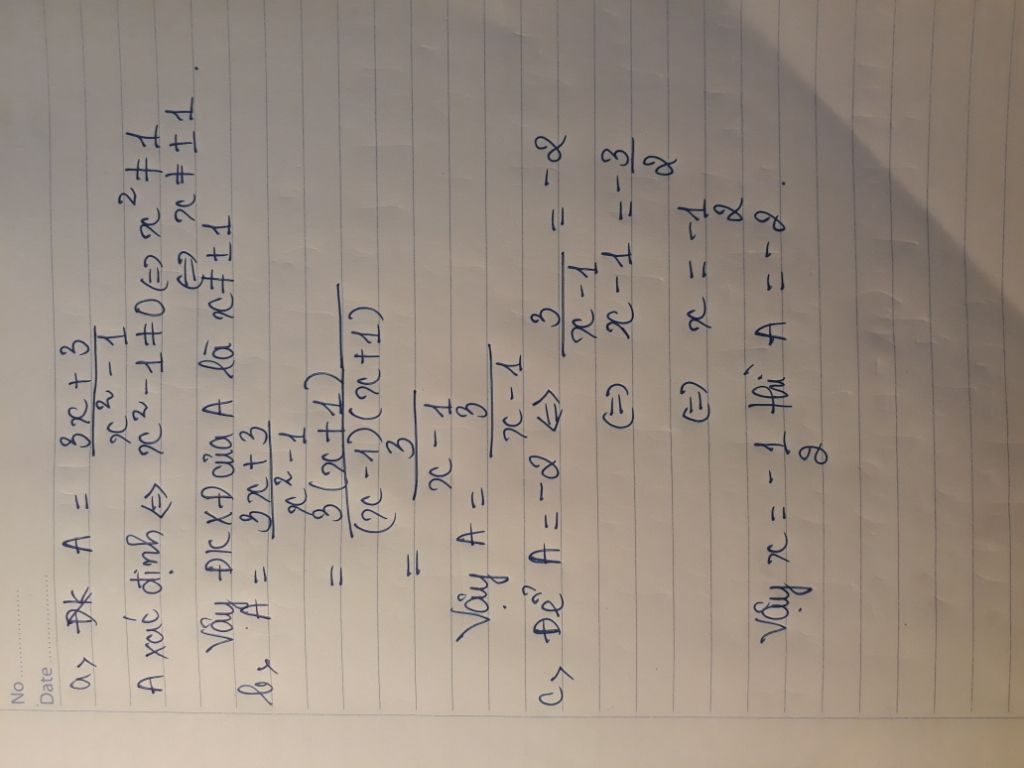 No ...............
Date ...............
a, ĐK A = \frac{3x+3}{x^2-1}
A xác định <=> x^2-1≠0 <=> x^2 ≠ 1
<=> x ≠ ±1.
Vậy ĐKXĐ của A là x ≠ ±1
b, A = \frac{3x+3}{x^2-1}
= \frac{3(x+1)}{(x-1)(x+1)}
= \frac{3}{x-1}
Vậy A = \frac{3}{x-1}
c, Để A = -2 <=> \frac{3}{x-1} = -2
<=> x-1 = -\frac{3}{2}
<=> x = \frac{-1}{2}
Vậy x = -\frac{1}{2} thì A = -2.